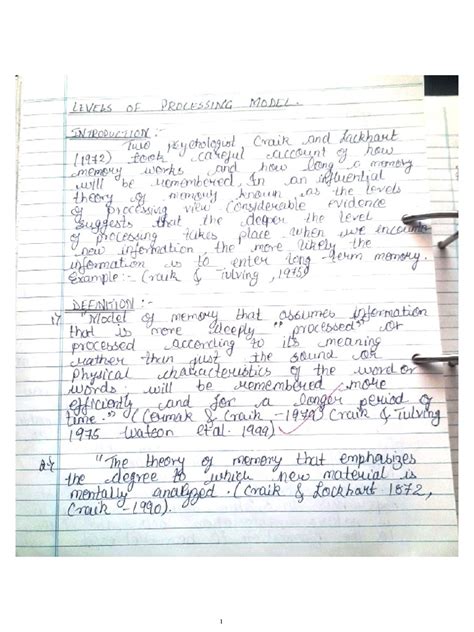 LEVELS OF PROCESSING MODEL.
INTRODUCTION :-
Two Psychologist Craik and Lockhart
(1972) took careful account of how
memory works and how long a memory
will be remembered. In an influential
theory of memory known as the levels
of processing view Considerable evidence
suggests that the deeper the level
of processing takes place when we
new information, the more likely the
information is to enter long-term memory.
Example :- (Craik & Tulving, 1975)
DEFINITION :-
"Model of memory that assumes information
that is more deeply "processed" or
processed according to its meaning
rather than just the sound or
physical characteristics of the word or
words will be remembered more
efficiently and for a longer period of
time." ((Cermak & Craik -1979) Craik & Tulving
1975 Watson et al. 1999)
"The theory of memory that emphasizes
the degree to which new material is
mentally analyzed. (Craik & Lockhart 1872,
Craik -1990).
1